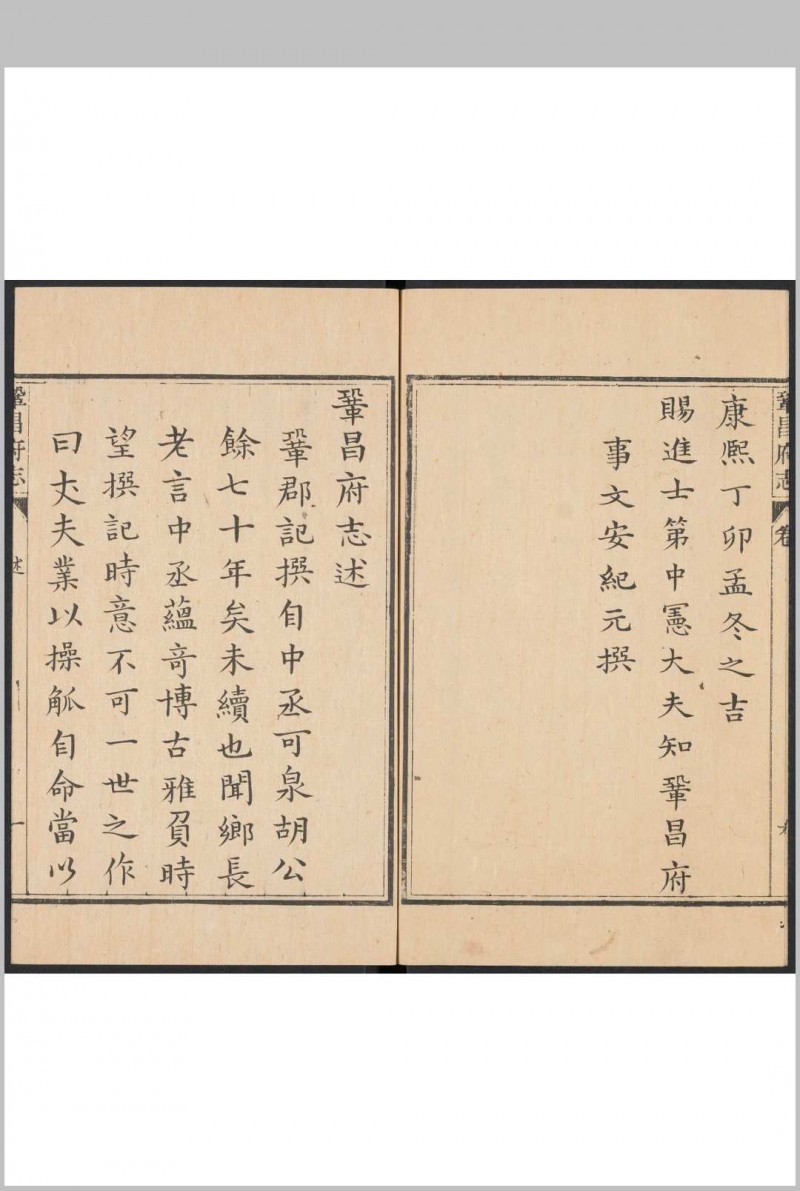 鞏昌府志
卷
康熙丁卯孟冬之吉
賜進士第中憲大夫知鞏昌府
事文安紀元撰
鞏昌府志述
鞏郡記撰自中丞可泉胡公
餘七十年矣未續也聞鄉長
老言中丞蘊竒博古雅負時
望撰記時意不可一世之作
曰大夫業以操觚自命當以
鞏昌府志
述
一